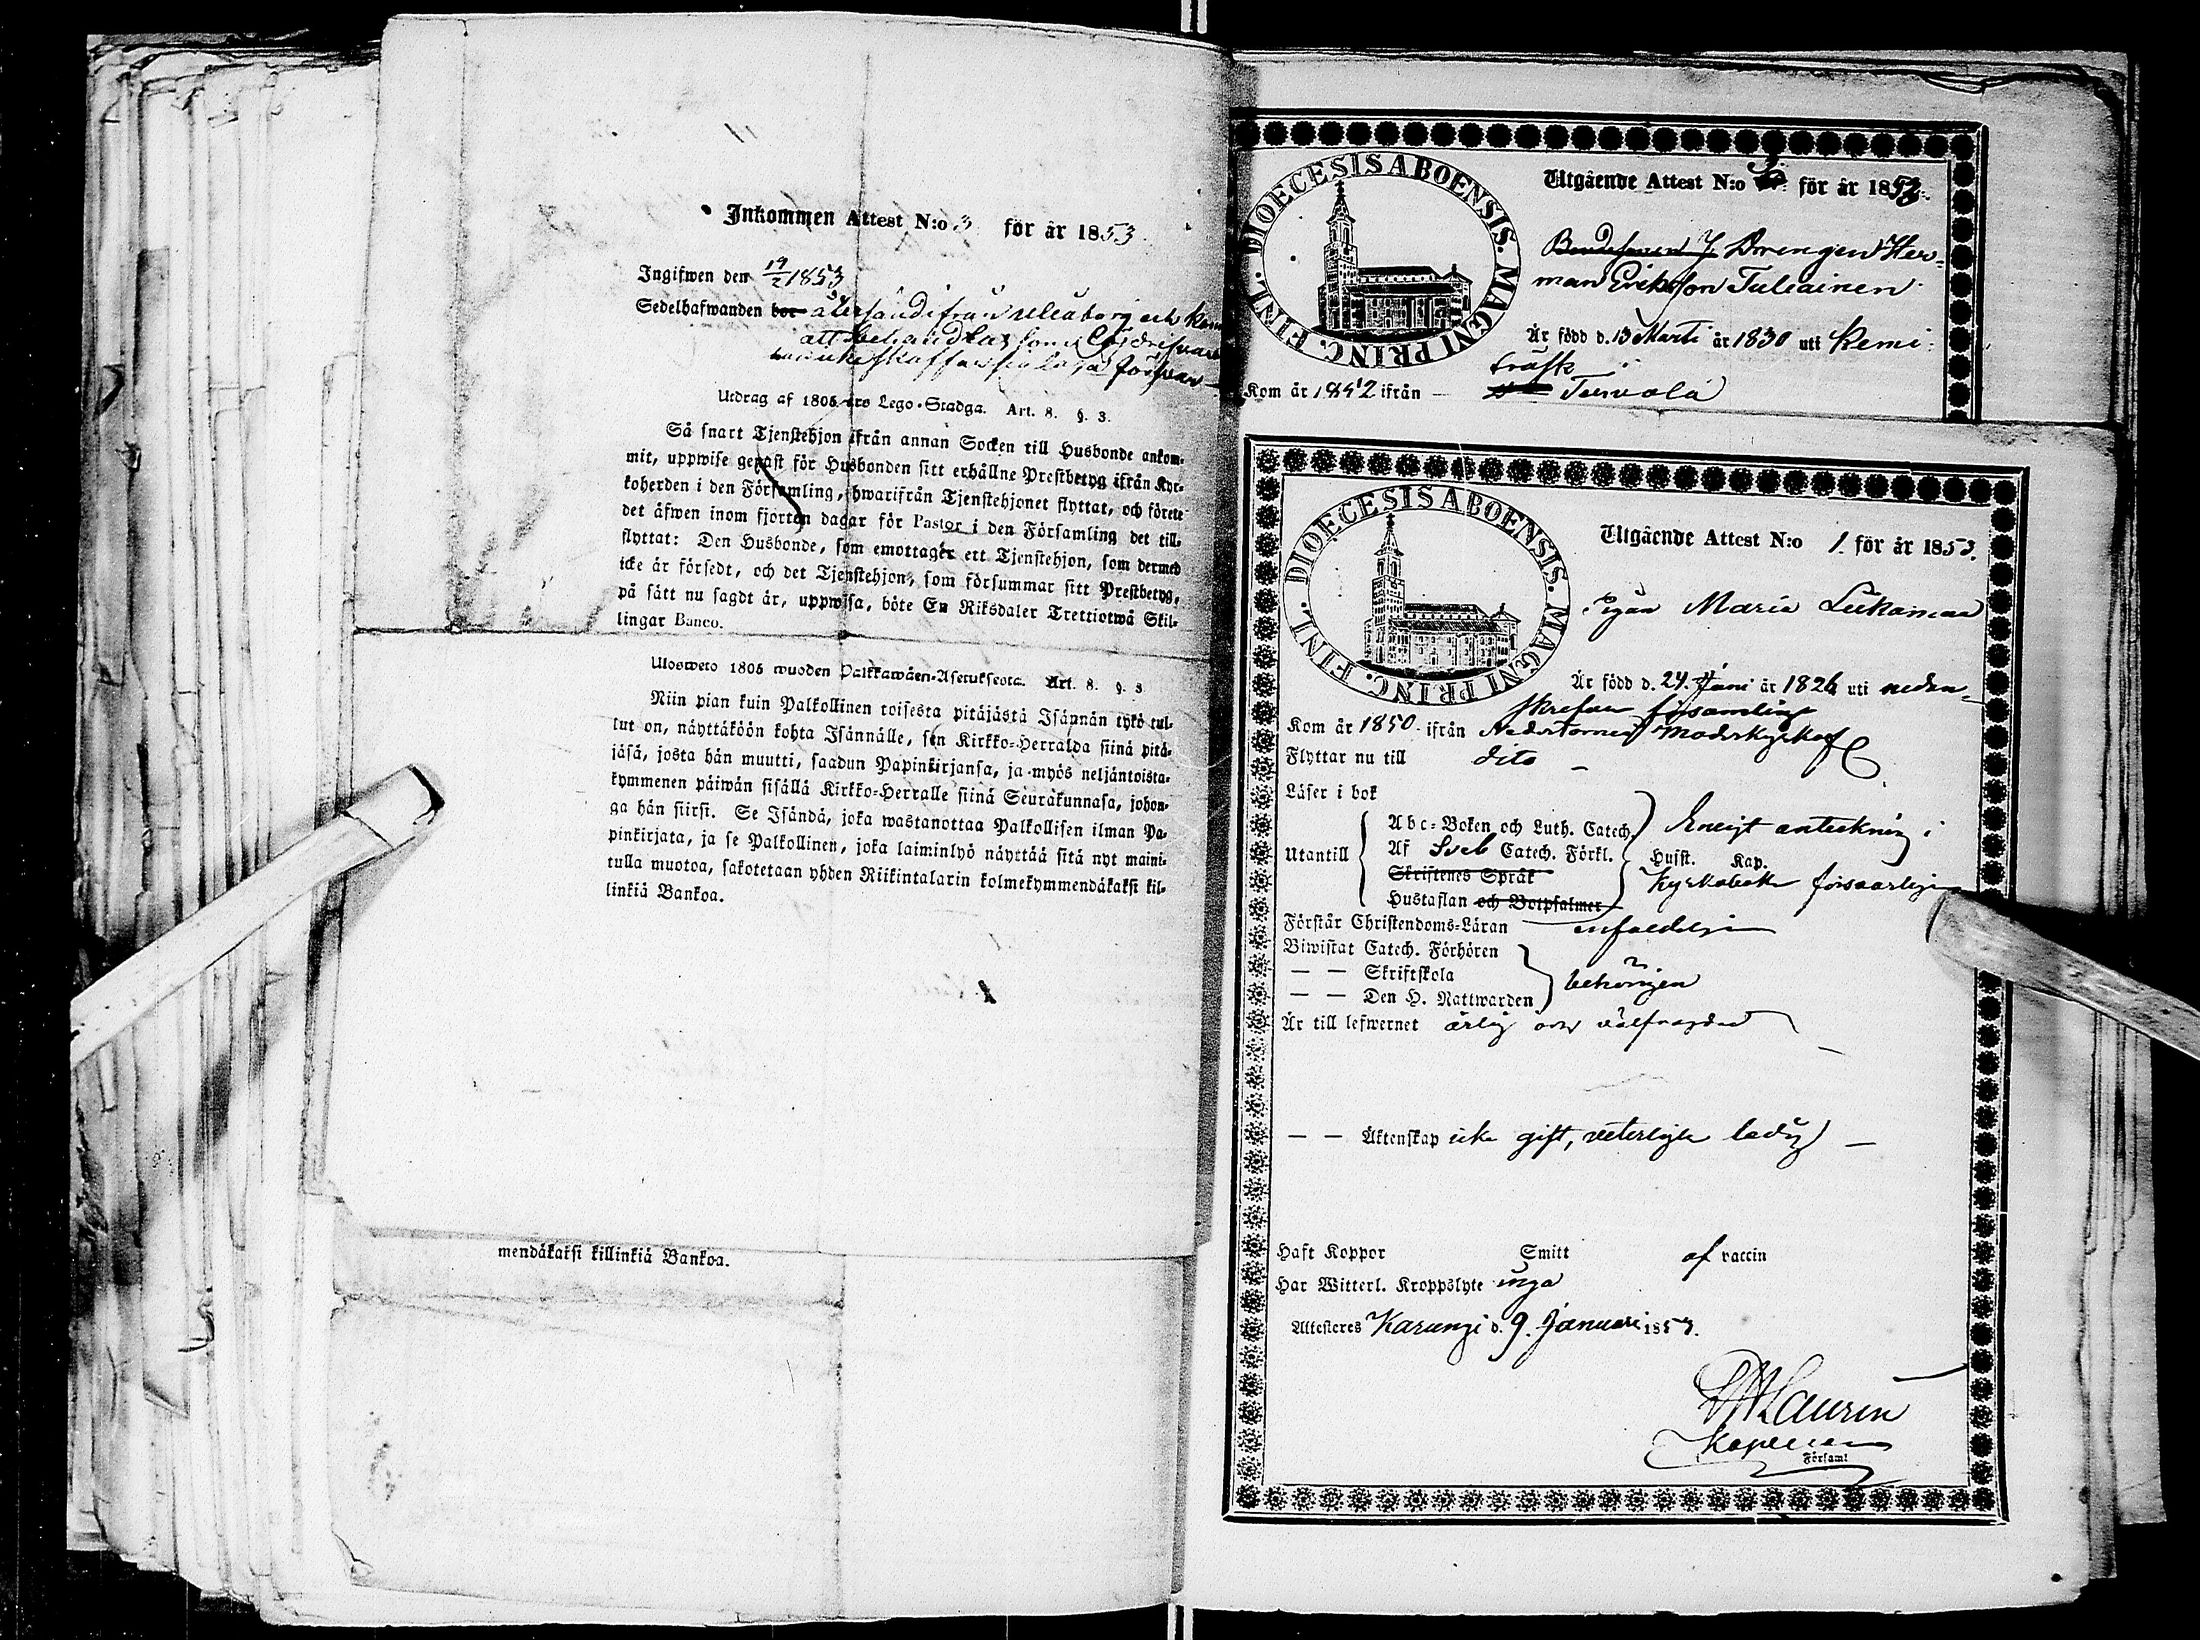 Inkommen Attest N:o 3 för år 1853
Ingifwen den 19/2 1853
Sedelhafwanden bor återsänd från Uleåborg och
att behandlas som
Utdrag af 1805 års Lego-Stadga. Art. 8. §. 3.
Så snart Tjenstehjon ifrån annan Socken till Husbonde ankom-
mit, uppwise genast för Husbonden sitt erhållne Prestbetyg ifrån Kyr-
koherden i den Församling, hwarifrån Tjenstehjonet flyttat, och förete
det äfwen inom fjorton dagar för Pastor i den Församling det till-
flyttat: Den Husbonde, som emottager ett Tjenstehjon, som dermed
icke är försedt, och det Tjenstehjon, som försummar sitt Prestbetyg,
på sätt nu sagdt är, uppwisa, böte En Riksdaler Trettiotwå Skil-
lingar Banco.
Ulosweto 1805 wuoden Palkkawäen-Asetuksesta. Art. 8. §. 3
Niin pian kuin Palkollinen toisesta pitäjästä Isännän tykö tul-
lut on, näyttäköön kohta Isännälle, sen Kirkko-Herralda siinä pitä-
jäsä, josta hän muutti, saadun Papinkirjansa, ja myös neljäntoista-
kymmenen päiwän sisällä Kirkko-Herralle siinä Seurakunnasa, johon-
ga hän siirsi. Se Isändä, joka wastanottaa Palkollisen ilman Pa-
pinkirjata, ja se Palkollinen, joka laiminlyö näyttää sitä nyt maini-
tulla muotoa, sakotetaan yhden Riikintalarin kolmekymmendäkaksi kil-
linkiä Bankoa.
mendäkaksi killinkiä Bankoa.
DIOECESIS ABOENSIS. MAGNI PRINC. FINL.
Utgående Attest N:o 3. för år 1853.
Drengen Her-
man Eriksson Tuliainen
Är född d. 13 Marti år 1830 uti Kemi
träsk
Kom år 1852 ifrån — Tervola
DIOECESIS ABOENSIS. MAGNI PRINC. FINL.
Utgående Attest N:o 1. för år 1853.
Pigan Maria Liekamaa
Är född d. 24. Juni år 1826 uti nedan-
skrefne församling
Kom år 1850 ifrån Nedertorneå Moderkyrka
Flyttar nu till dito —
Läser i bok
Utantill
Abc-Boken och Luth. Catech.
Af Sveb Catech. Förkl.
Skriftenes Språk
Hustaflan och Botpsalmer
Enligt anteckning i
Husst. Kap.
Kyrkoboken försvarligen
Förstår Christendoms-Läran enfaldigen
Biwistat Catech. Förhören
— — Skriftskola
— — Den H. Nattwarden
behörigen
Är till lefwernet ärlig och välfrägdad
— — Äktenskap icke gift, veterligen ledig —
Haft Koppor Smitt af vaccin
Har Witterl. Kroppslyte inga
Attesteres Karungi d. 9. Januari 1853.
Laurin
Församl